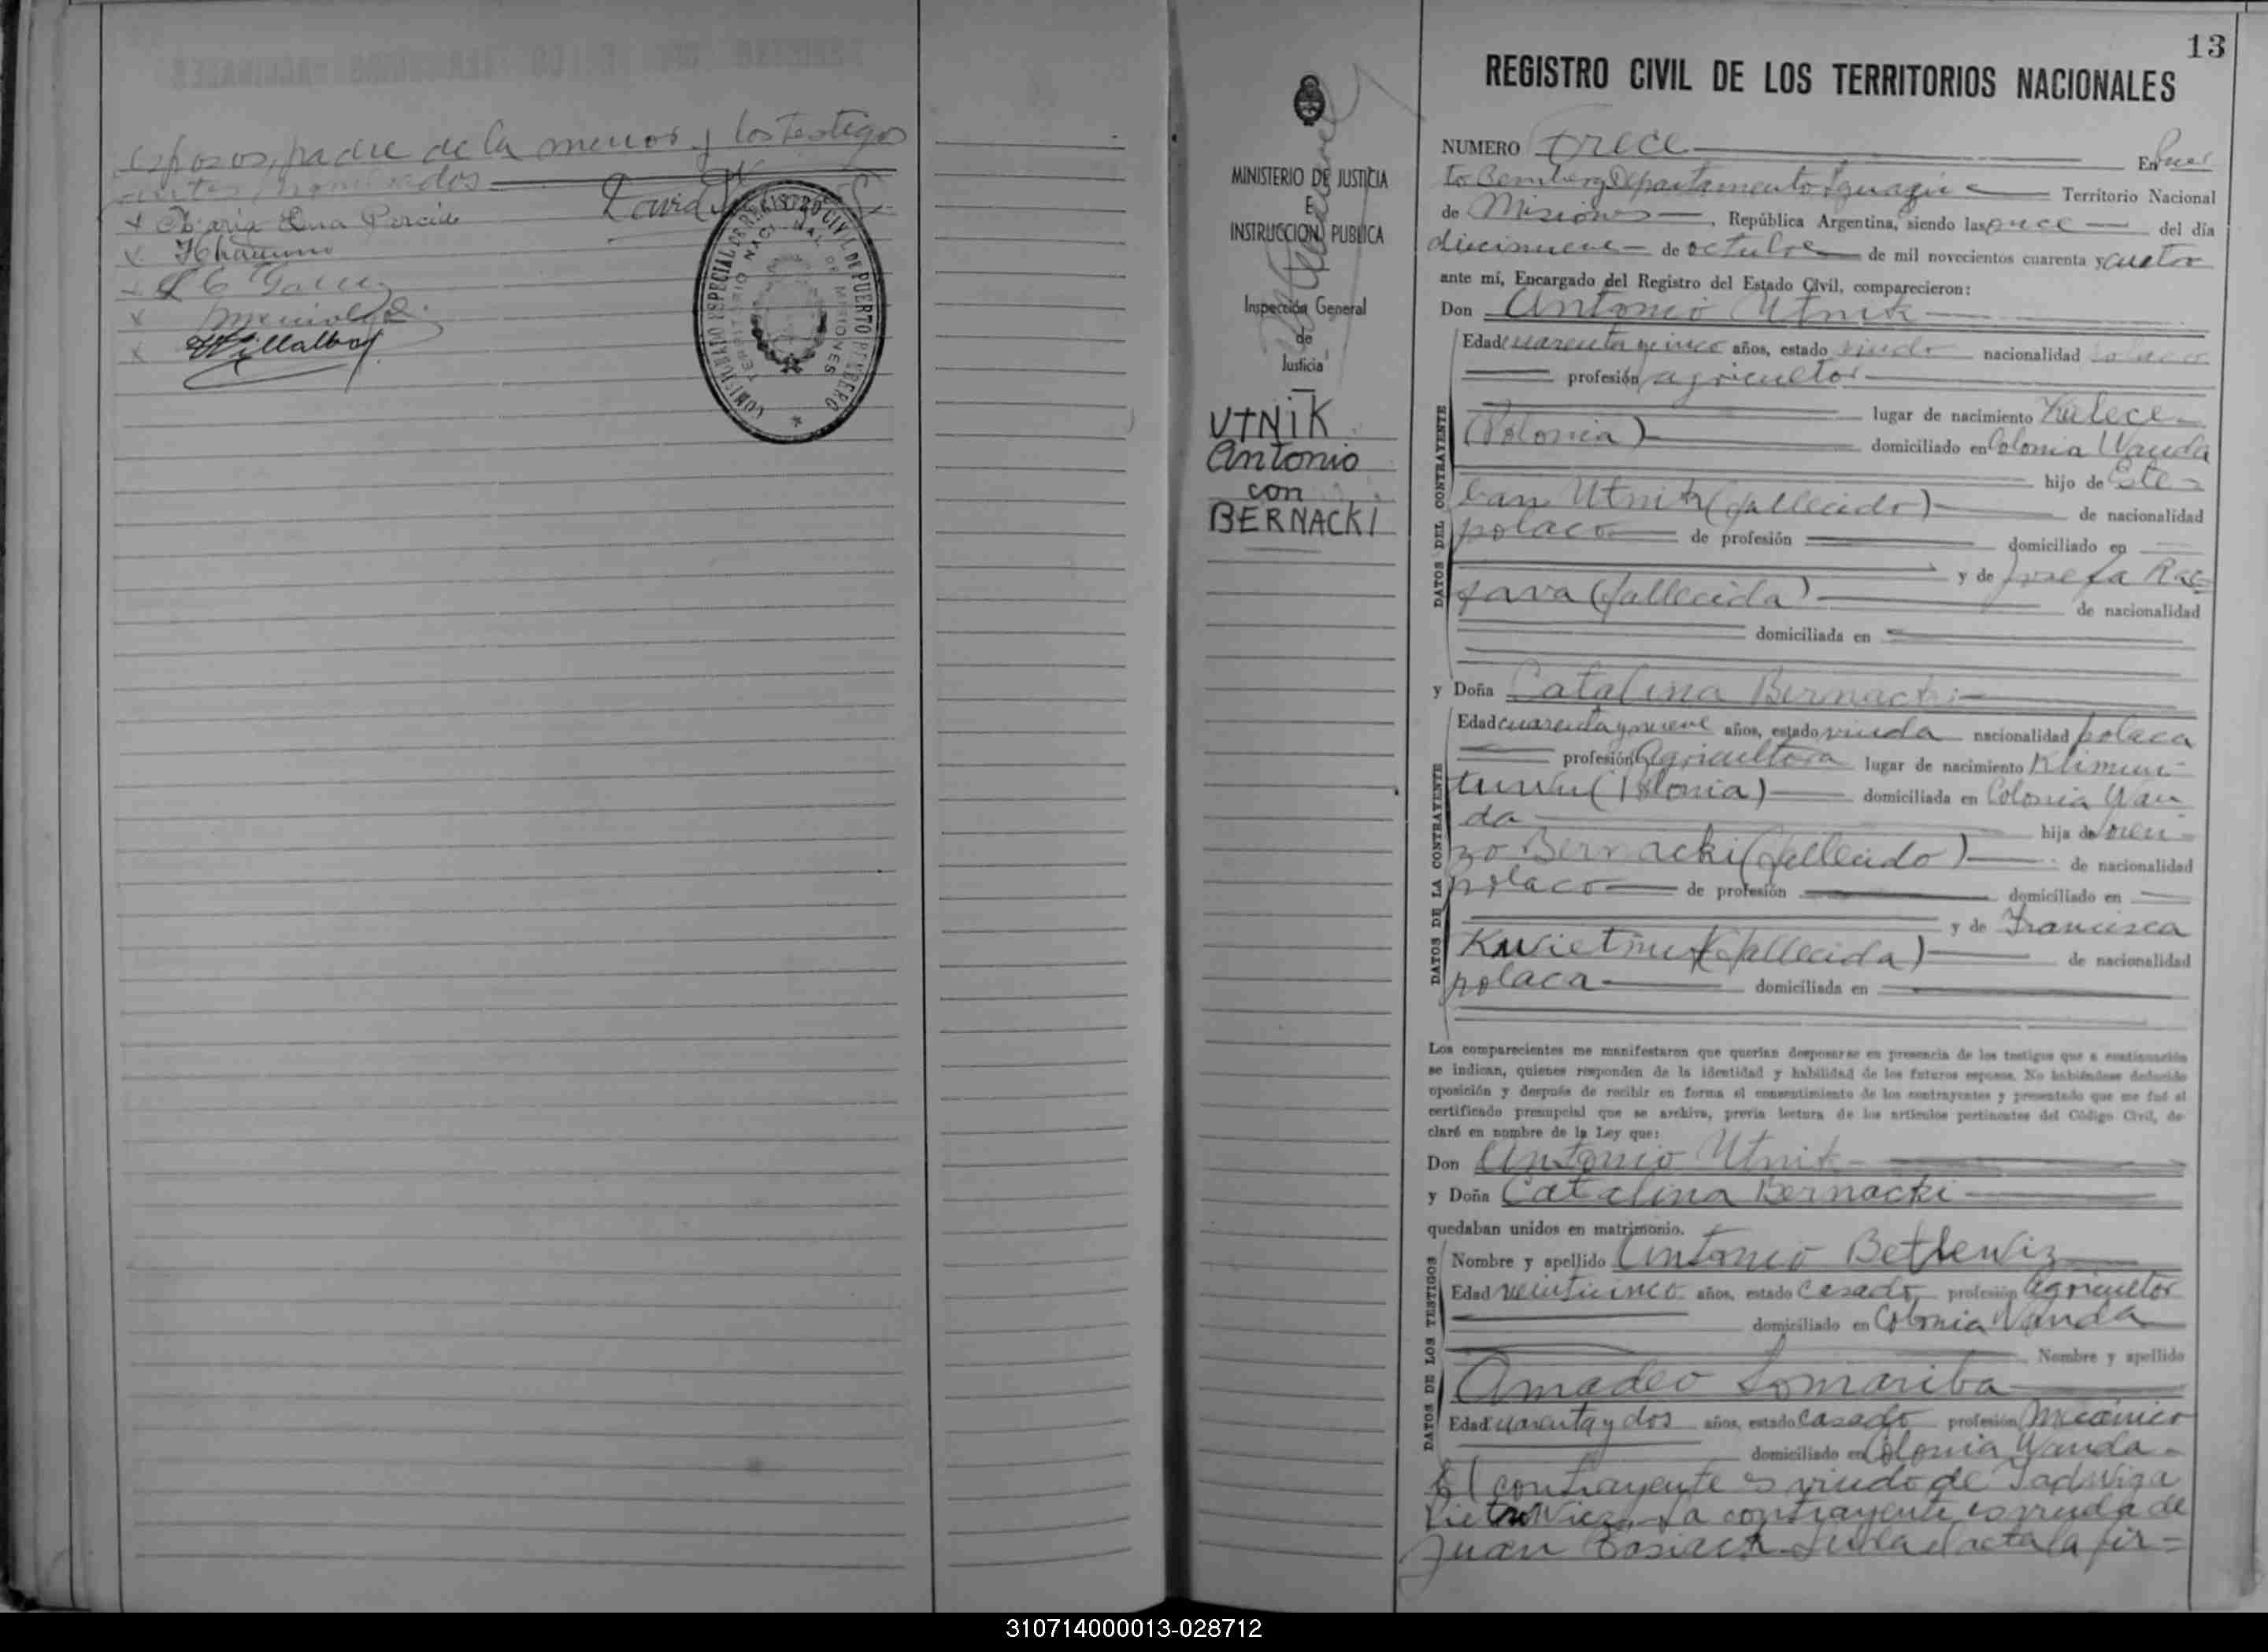 esposos, padre de la menor y los testigos
antes nombrados
X Maria Ana
X
X
X
X Villalba
COMISARIATO ESPECIAL DE REGISTRO CIVIL DE PUERTO
TERRITORIO NACIONAL DE MISIONES
MINISTERIO DE JUSTICIA
E
INSTRUCCION PUBLICA
Inspección General
de
Justicia
UTNIK
Antonio
con
BERNACKI
13
REGISTRO CIVIL DE LOS TERRITORIOS NACIONALES
NUMERO trece En Puer
to Bemberg Departamento Iguazú Territorio Nacional
de Misiones, República Argentina, siendo las once del día
diecinueve de octubre de mil novecientos cuarenta y cuatro
ante mí, Encargado del Registro del Estado Civil, comparecieron:
Don Antonio Utnik
DATOS DEL CONTRAYENTE
Edad cuarenta y cinco años, estado viudo nacionalidad polaco
profesión agricultor
lugar de nacimiento
(Polonia) domiciliado en Colonia Wanda
hijo de Este
ban Utnik (fallecido) de nacionalidad
polaco de profesión domiciliado en
y de Josefa
(fallecida) de nacionalidad
domiciliada en
y Doña Catalina Bernacki
DATOS DE LA CONTRAYENTE
Edad cuarenta y nueve años, estado viuda nacionalidad polaca
profesión Agricultora lugar de nacimiento
(Polonia) domiciliada en Colonia Wan
da hija de Loren
zo Bernacki (fallecido) de nacionalidad
polaco de profesión domiciliado en
y de Francisca
(fallecida) de nacionalidad
polaca domiciliada en
Los comparecientes me manifestaron que querían desposarse en presencia de los testigos que a continuación
se indican, quienes responden de la identidad y habilidad de los futuros esposos. No habiéndose deducido
oposición y después de recibir en forma el consentimiento de los contrayentes y presentado que me fué el
certificado prenupcial que se archiva, previa lectura de los artículos pertinentes del Código Civil, de-
claré en nombre de la Ley que:
Don Antonio Utnik
y Doña Catalina Bernacki
quedaban unidos en matrimonio.
DATOS DE LOS TESTIGOS
Nombre y apellido Antonio Betlewiz
Edad veinticinco años, estado casado, profesión Agricultor
domiciliado en Colonia Wanda
Nombre y apellido
Amadeo Somariba
Edad cuarenta y dos años, estado casado profesión Mecánico
domiciliado en Colonia Wanda
El contrayente es viudo de Jadwiga
La contrayente es viuda de
Juan Leida el acta la fir=
310714000013-028712